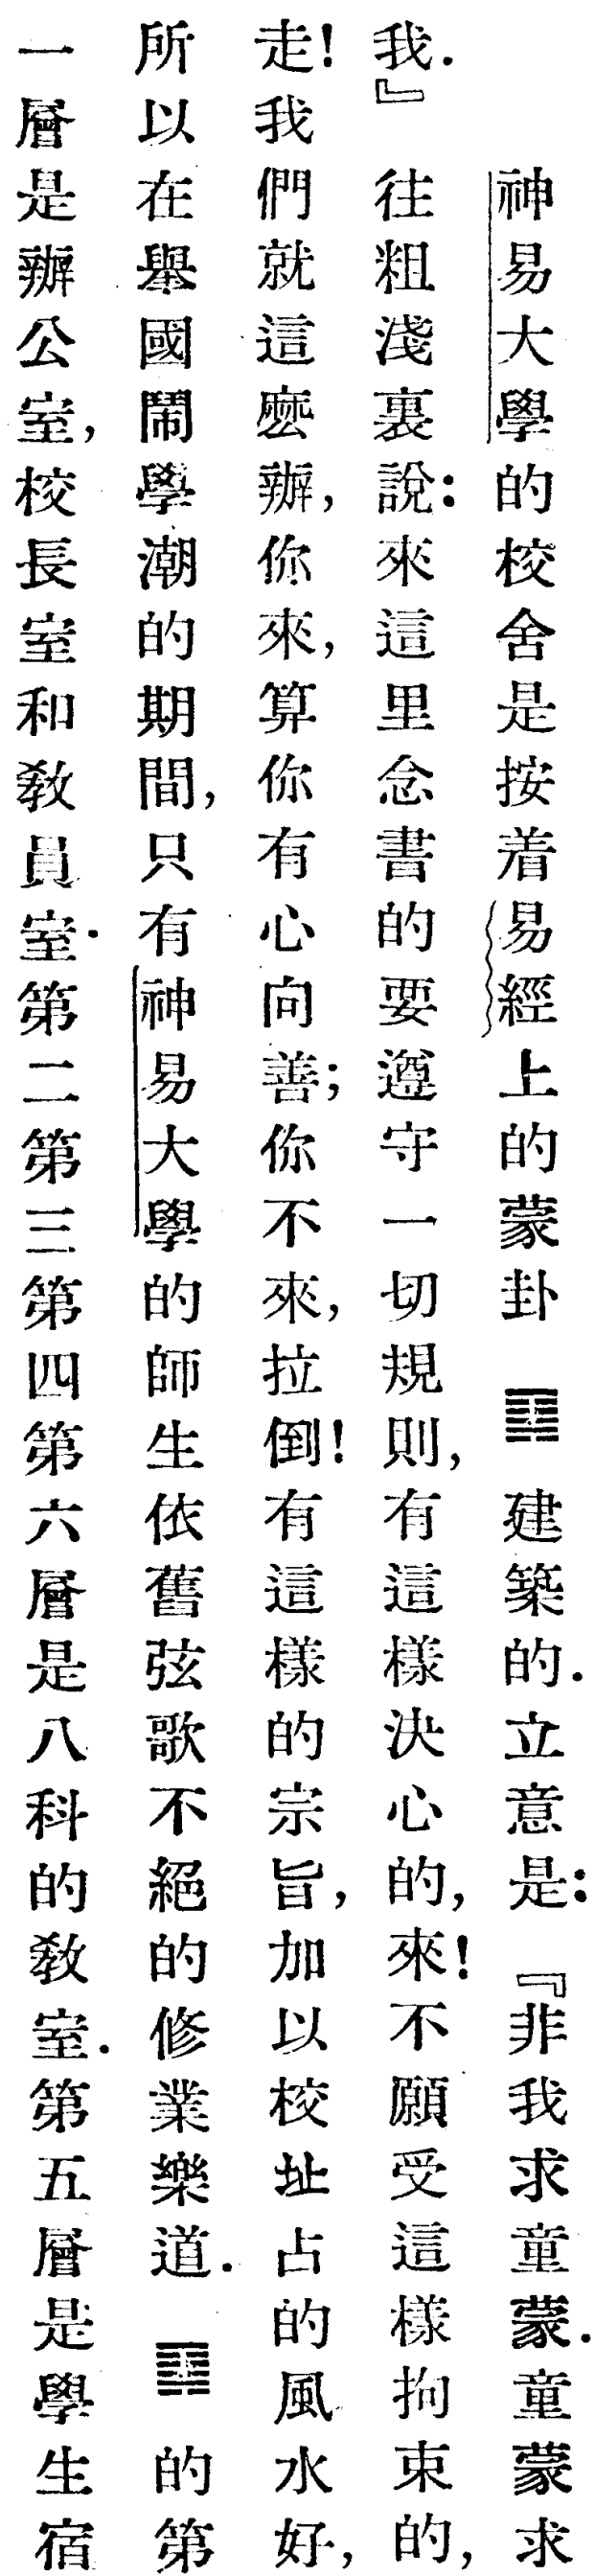 神易大學的校舍是按着易經上的蒙卦䷃建築的.立意是:『非我求童蒙.童蒙求
我.』往粗淺裏說:來這里念書的要遵守一切規則,有這樣決心的,來!不願受這樣拘束的,
走!我們就這麽辦,你來,算你有心向善;你不來,拉倒!有這樣的宗旨,加以校址占的風水好,
所以在舉國鬧學潮的期間,只有神易大學的師生依舊弦歌不絕的修業樂道.䷃的第
一層是辦公室,校長室和敎員室.第二第三第四第六層是八科的敎室.第五層是學生宿